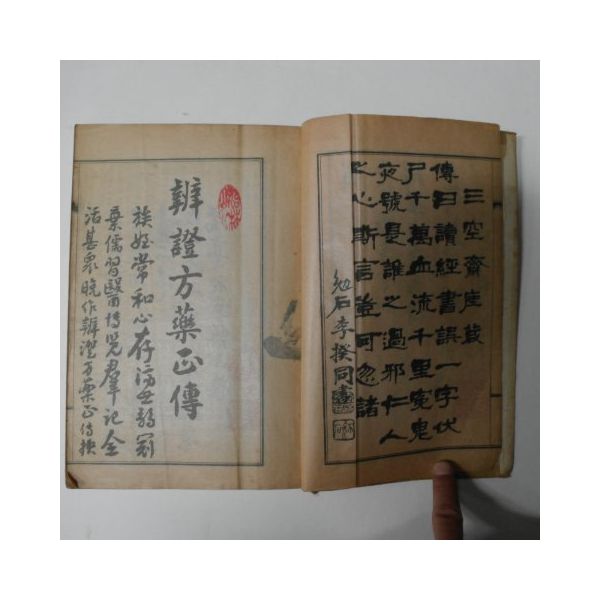 三空齋座箴
傳曰讀經書誤一字伏
尸千萬血流千里冤鬼
夜號是誰之過邪仁人
之心斯言豈可忽諸
勉石李揆同書
辨證方藥正傳
族姪常和心存濟世
棄儒習醫博覽羣記全
活甚衆晩作辨證方藥正傳